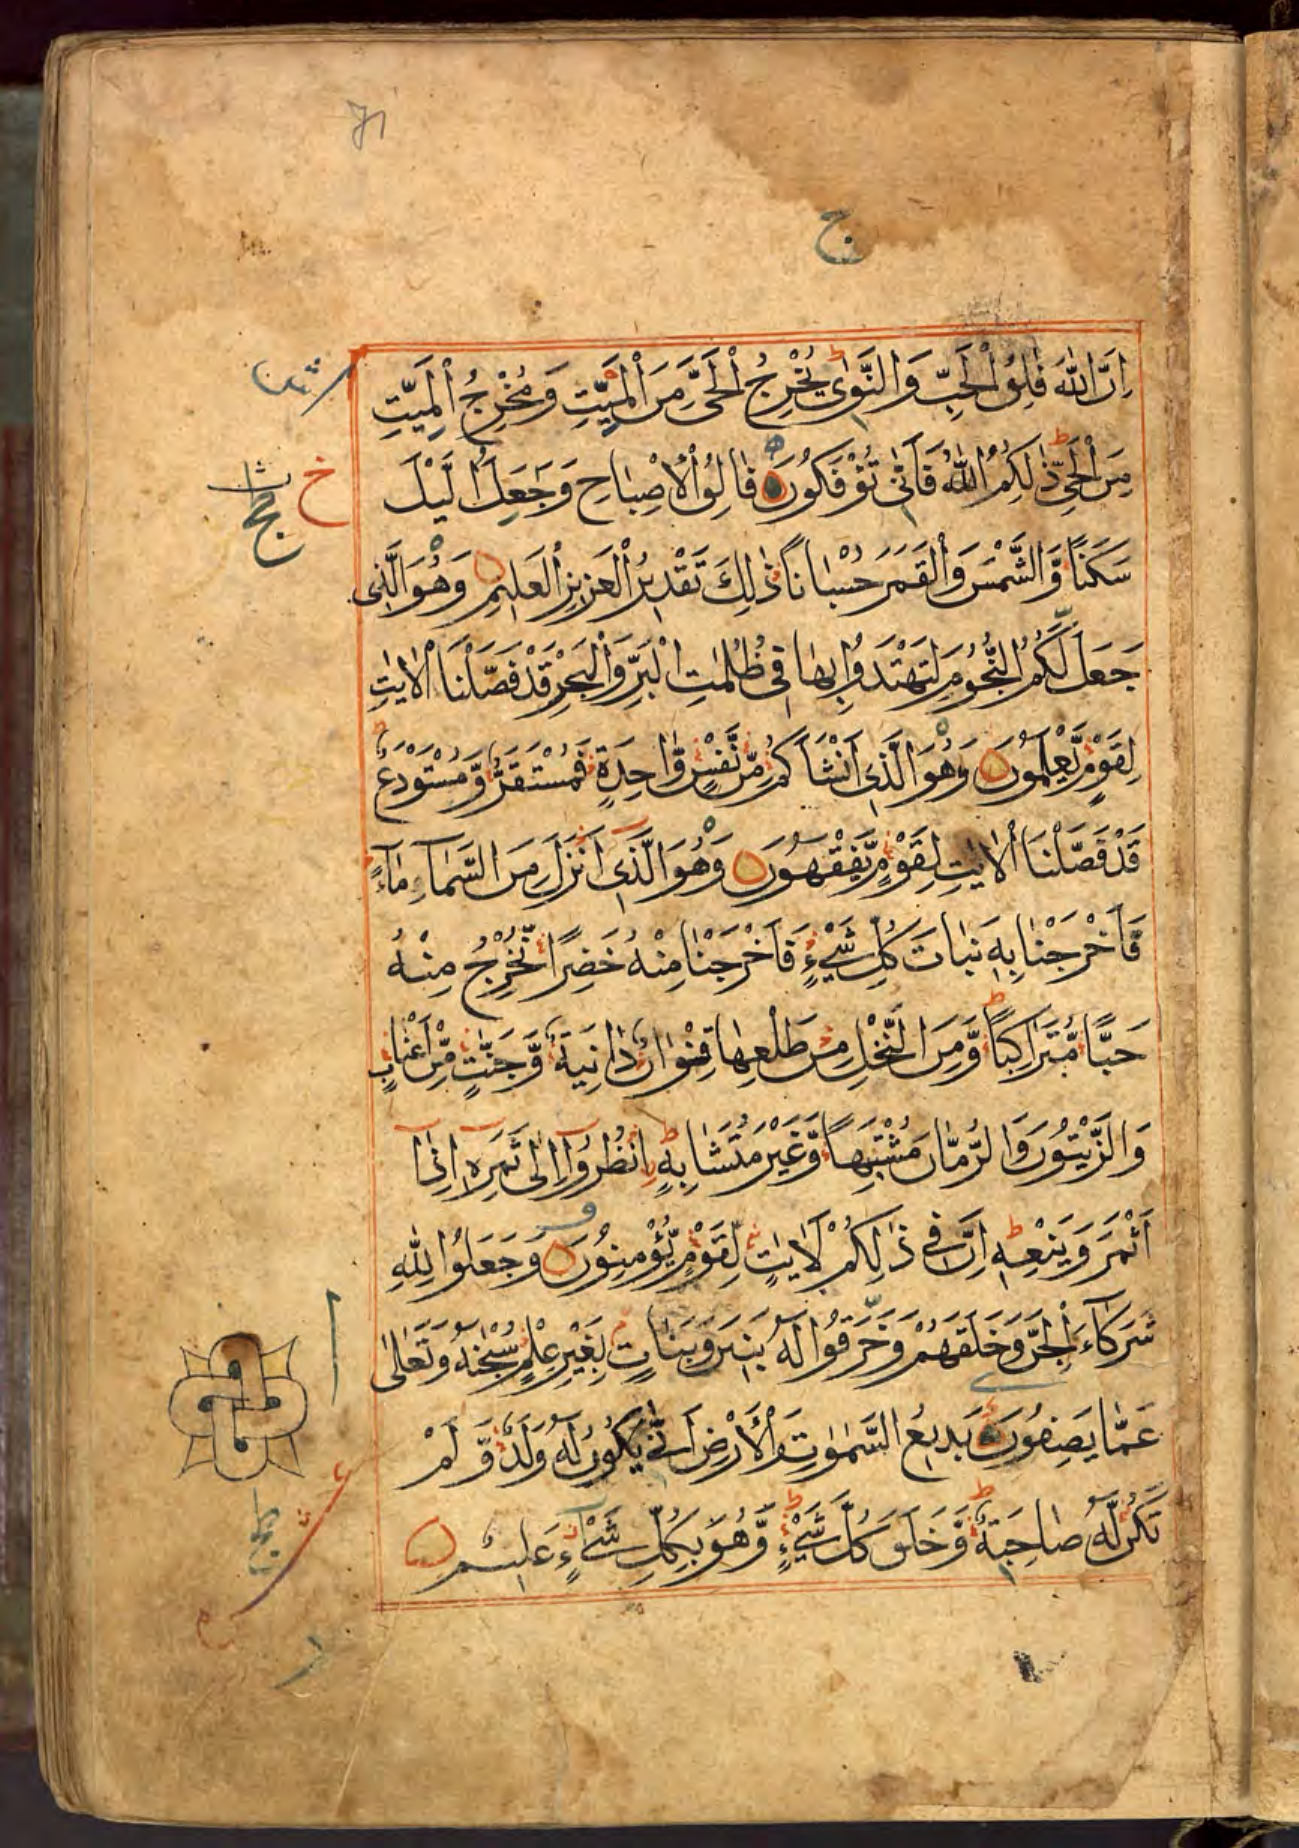 اِنَّ اللّٰهَ فٰلِقُ الْحَبِّ وَالنَّوٰى يُخْرِجُ الْحَىَّ مِنَ الْمَيِّتِ وَمُخْرِجُ الْمَيِّتِ
مِنَ الْحَىِّ ذٰلِكُمُ اللّٰهُ فَاَنّٰى تُؤْفَكُوْنَ فٰالِقُ الْاِصْبَاحِ وَجَعَلَ الَّيْلَ
سَكَنًا وَّالشَّمْسَ وَالْقَمَرَ حُسْبَانًا ذٰلِكَ تَقْدِيْرُ الْعَزِيْزِ الْعَلِيْمِ وَهُوَ الَّذِى
جَعَلَ لَكُمُ النُّجُوْمَ لِتَهْتَدُوْا بِهَا فِى ظُلُمٰتِ الْبَرِّ وَالْبَحْرِ قَدْ فَصَّلْنَا الْاٰيٰتِ
لِقَوْمٍ يَّعْلَمُوْنَ وَهُوَ الَّذِى اَنْشَاَكُمْ مِّنْ نَّفْسٍ وّٰاحِدَةٍ فَمُسْتَقَرٌّ وَّمُسْتَوْدَعٌ
قَدْ فَصَّلْنَا الْاٰيٰتِ لِقَوْمٍ يَّفْقَهُوْنَ وَهُوَ الَّذِى اَنْزَلَ مِنَ السَّمَآءِ مَآءً
فَاَخْرَجْنَا بِهٖ نَبَاتَ كُلِّ شَىْءٍ فَاَخْرَجْنَا مِنْهُ خَضِرًا نُّخْرِجُ مِنْهُ
حَبًّا مُّتَرَاكِبًا وَّمِنَ النَّخْلِ مِنْ طَلْعِهَا قِنْوَانٌ دَانِيَةٌ وَّجَنّٰتٍ مِّنْ اَعْنَابٍ
وَالزَّيْتُوْنَ وَالرُّمَّانَ مُشْتَبِهًا وَّغَيْرَ مُتَشَابِهٍ اُنْظُرُوْٓا اِلٰى ثَمَرِهٖ اِذَآ
اَثْمَرَ وَيَنْعِهٖ اِنَّ فِى ذٰلِكُمْ لَاٰيٰتٍ لِّقَوْمٍ يُّؤْمِنُوْنَ وَجَعَلُوْا لِلّٰهِ
شُرَكَآءَ الْجِنَّ وَخَلَقَهُمْ وَخَرَقُوْا لَهٗ بَنِيْنَ وَبَنَاتٍ بِغَيْرِ عِلْمٍ سُبْحٰنَهٗ وَتَعٰلٰى
عَمَّا يَصِفُوْنَ بَدِيْعُ السَّمٰوٰتِ وَالْاَرْضِ اَنّٰى يَكُوْنُ لَهٗ وَلَدٌ وَّلَمْ
تَكُنْ لَّهٗ صَاحِبَةٌ وَّخَلَقَ كُلَّ شَىْءٍ وَّهُوَ بِكُلِّ شَىْءٍ عَلِيْمٌ